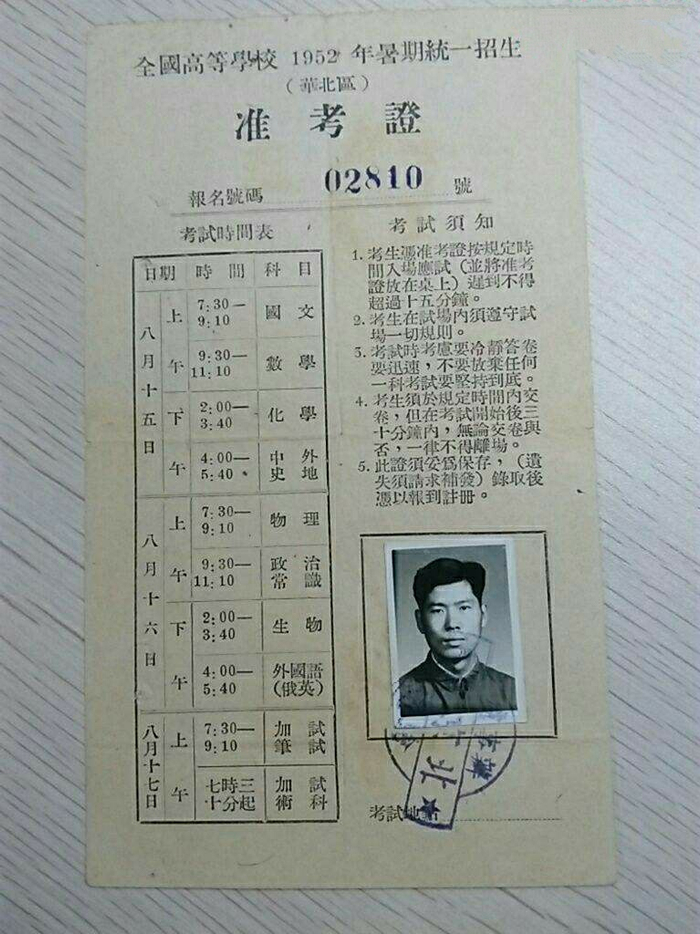 全國高等學校 1952 年暑期統一招生
（華北區）
准考證
報名號碼 02810 號
考試時間表
日期 時間 科目
八月十五日
上午
7:30—9:10 國文
9:30—11:10 數學
下午
2:00—3:40 化學
4:00—5:40 中外史地
八月十六日
上午
7:30—9:10 物理
9:30—11:10 政治常識
下午
2:00—3:40 生物
4:00—5:40 外國語(俄英)
八月十七日
上午
7:30—9:10 加試筆試
七時三十分起 加試術科
考試須知
1. 考生憑准考證按規定時
間入場應試（並將准考
證放在桌上）遲到不得
超過十五分鐘。
2. 考生在試場內須遵守試
場一切規則。
3. 考試時考慮要冷靜答卷
要迅速，不要放棄任何
一科考試要堅持到底。
4. 考生須於規定時間內交
卷，但在考試開始後三
十分鐘內，無論交卷與
否，一律不得離場。
5. 此證須妥爲保存，（遺
失須請求補發）錄取後
憑以報到註冊。
考試地點
北